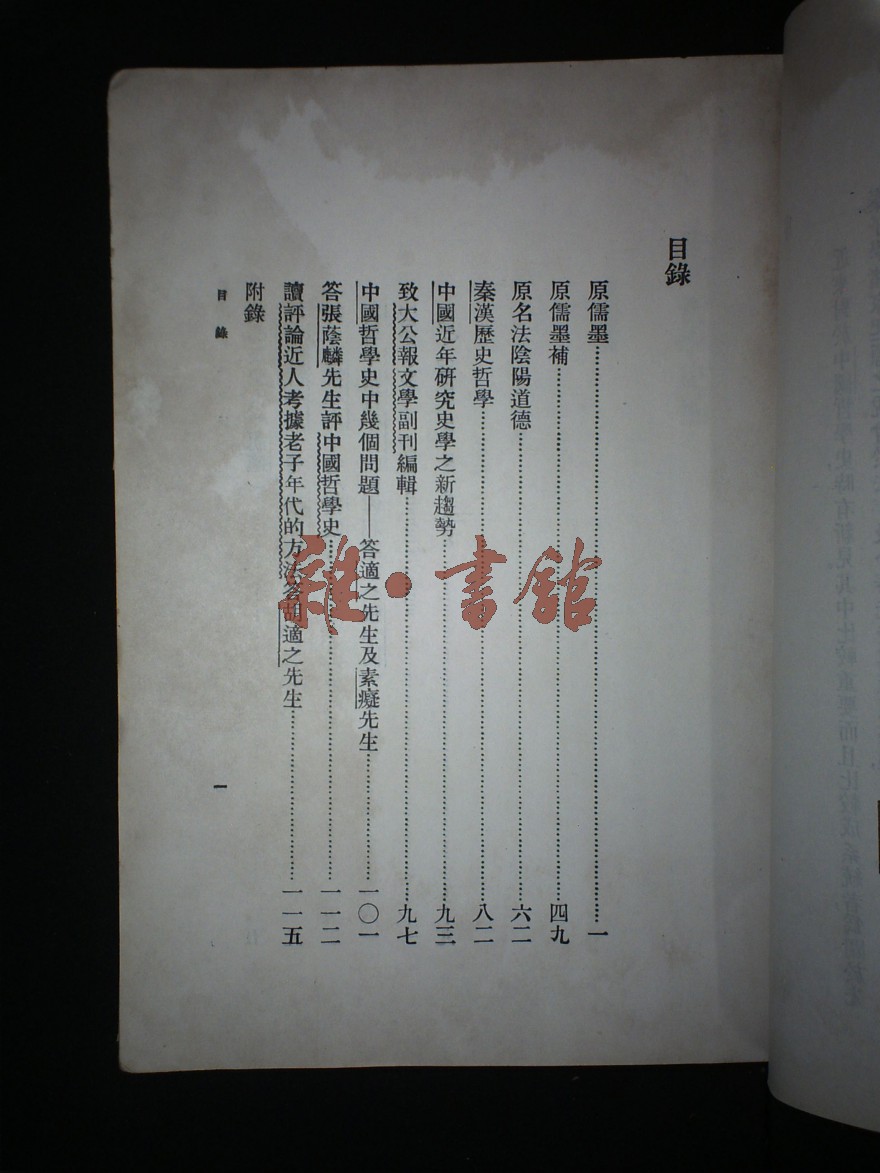 目錄
原儒墨……一
原儒墨補……四九
原名法陰陽道德……六二
秦漢歷史哲學……八二
中國近年研究史學之新趨勢……九三
致大公報文學副刊編輯……九七
中國哲學史中幾個問題——答適之先生及素癡先生……一〇一
答張蔭麟先生評中國哲學史……一一二
讀評論近人考據老子年代的方法答胡適之先生……一一五
附錄
目錄
一
雜·書館